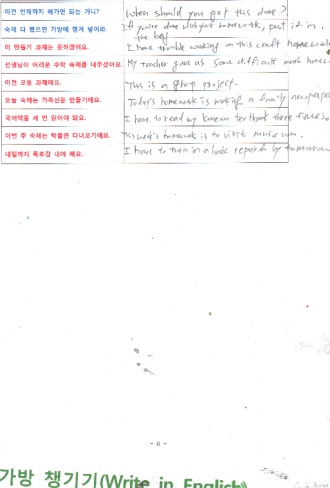 이건 언제까지 해가면 되는 거니? When should you get this done?
숙제 다 했으면 가방에 챙겨 넣어라. If you're done with your homework, put it in
the bag.
이 만들기 과제는 못하겠어요. I have trouble working on this craft homework
선생님이 어려운 수학 숙제를 내주셨어요. My teacher gave us some difficult math home
이건 모둠 과제예요. This is a group project.
오늘 숙제는 가족신문 만들기예요. Today's homework is making a family newspaper
국어책을 세 번 읽어야 돼요. I have to read my Korean textbook three times.
이번 주 숙제는 박물관 다녀오기예요. This week's homework is to visit museum.
내일까지 독후감 내야 해요. I have to turn in a book report by tomorrow
- 8 -
가방 챙기기(Write in English)